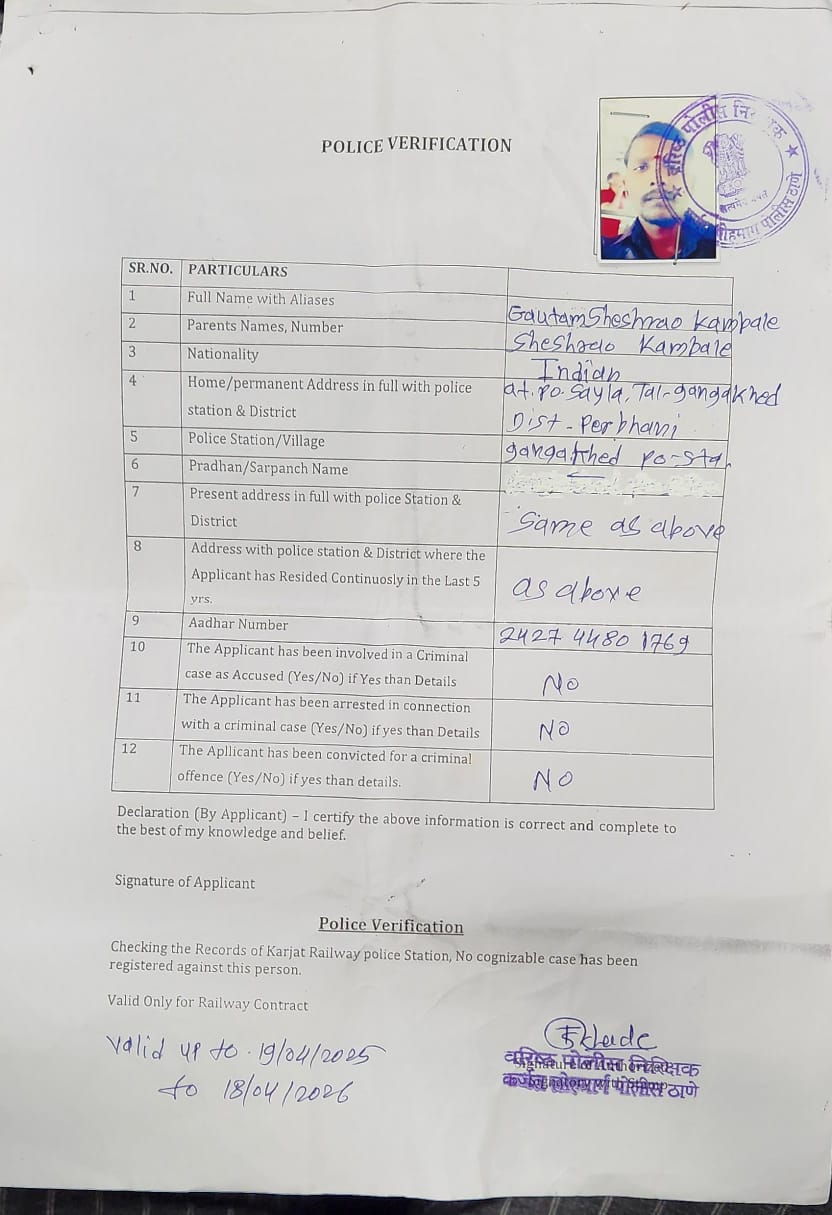 POLICE VERIFICATION
वरिष्ठ पोलीस
सत्यमेव जयते
पोलीस ठाणे
SR.NO. PARTICULARS
1 Full Name with Aliases Gautam Sheshrao Kambale
2 Parents Names, Number Sheshrao Kambale
3 Nationality Indian
4 Home/permanent Address in full with police at.po.Sayla, Tal-gangakhed
station & District Dist - Perbhani
5 Police Station/Village gangakhed po-sta
6 Pradhan/Sarpanch Name
7 Present address in full with police Station &
District Same as above
8 Address with police station & District where the
Applicant has Resided Continuosly in the Last 5 as above
yrs.
9 Aadhar Number 2427 4480 1769
10 The Applicant has been involved in a Criminal
case as Accused (Yes/No) if Yes than Details No
11 The Applicant has been arrested in connection
with a criminal case (Yes/No) if yes than Details NO
12 The Apllicant has been convicted for a criminal
offence (Yes/No) if yes than details. NO
Declaration (By Applicant) – I certify the above information is correct and complete to
the best of my knowledge and belief.
Signature of Applicant
Police Verification
Checking the Records of Karjat Railway police Station, No cognizable case has been
registered against this person.
Valid Only for Railway Contract
valid up to - 19/04/2025
to 18/04/2026
वरिष्ठ पोलीस निरिक्षक
पोलीस ठाणे